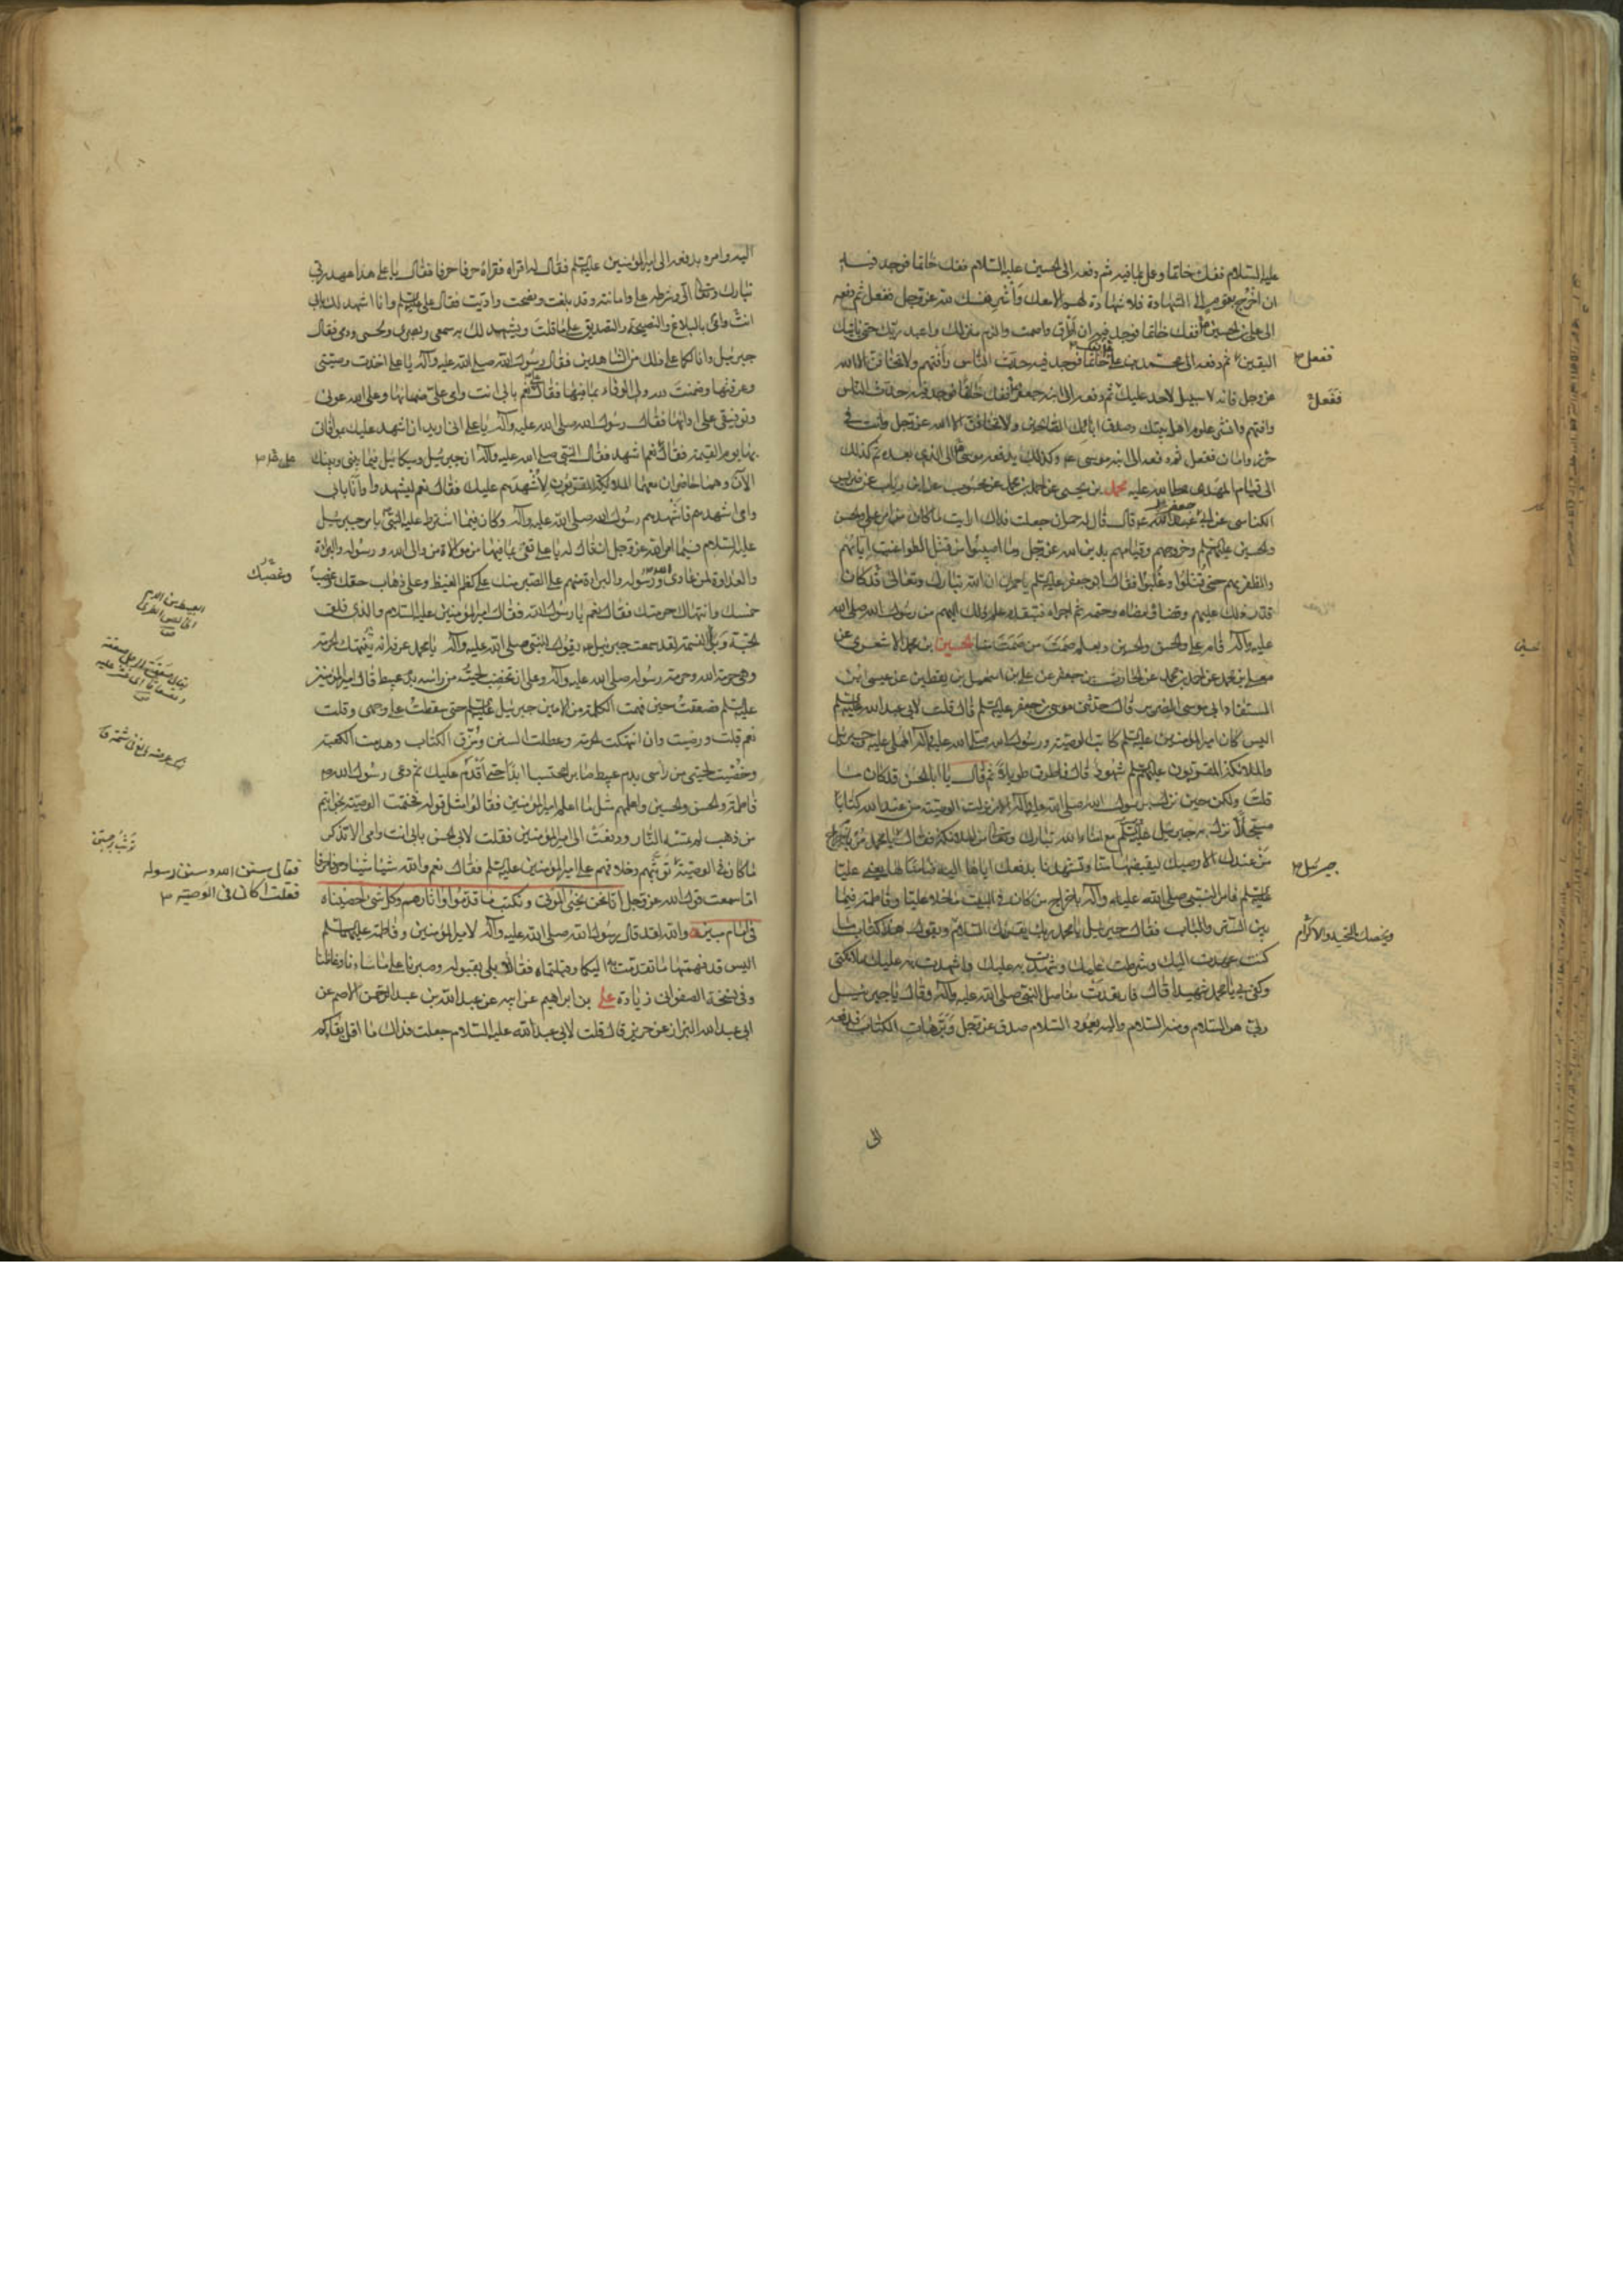 عليه السلام ففك خاتما وعمل بما فيه ثم دفعه الى الحسين عليه السلام ففك خاتما فوجد فيه
ان اخرج بقوم الى الشهادة فلا شهادة لهم الا معك واشر نفسك لله عز وجل ففعل ثم دفعه
الى علي بن الحسين ففك خاتما فوجد فيه ان اطرق واصمت والزم منزلك واعبد ربك حتى ياتيك
اليقين ثم دفعه الى محمد بن علي ففك خاتما فوجد فيه حدث الناس وافتهم ولا تخافن الا الله
ففعل
عز وجل فانه لا سبيل لاحد عليك ثم دفعه الى ابنه جعفر ففك خاتما فوجد فيه حدث الناس
ففعل
وافتهم وانشر علوم اهل بيتك وصدق ابائك الصالحين ولا تخافن الا الله عز وجل وانت في
حرز وامان ففعل ثم دفعه الى ابنه موسى وكذلك يدفعه موسى الى الذي بعده ثم كذلك
الى قيام المهدي صلى الله عليه محمد بن يحيى عن احمد بن محمد عن محبوب عن ابن رياب عن ضريس
الكناسي عن ابي جعفر قال قال له حمران جعلت فداك ارايت ما كان من امر علي والحسن
والحسين عليهم السلم وخروجهم وقيامهم بدين الله عز وجل وما اصيبوا من قتل الطواغيت اياهم
والظفر بهم حتى قتلوا وغلبوا فقال ابو جعفر عليه السلم يا حمران ان الله تبارك وتعالى قد كان
قدر ذلك عليهم وقضاه وامضاه وحتمه ثم اجراه فبتقدم علم ذلك اليهم من رسول الله صلى الله
عليه وآله قام علي والحسن والحسين وبعلم صمت من صمت منا الحسين بن محمد الاشعري عن
معلى بن محمد عن احمد بن محمد عن الحارث بن جعفر عن علي بن اسمعيل بن يقطين عن عيسى ابن
المستفاد ابي موسى الضرير قال حدثني موسى بن جعفر عليه السلم قال قلت لابي عبد الله عليه السلم
اليس كان امير المؤمنين عليه السلم كاتب الوصية ورسول الله صلى الله عليه وآله المملى عليه وجبرئيل
والملائكة المقربون عليهم السلم شهود قال فاطرق طويلا ثم قال يا ابا الحسن قد كان ما
قلت ولكن حين نزل برسول الله صلى الله عليه وآله الامر نزلت الوصية من عند الله كتابا
مسجلا نزل به جبرئيل عليه السلم مع امناء الله تبارك وتعالى من الملائكة فقال يا محمد مر باخراج
جبرئيل
من عندك الا وصيك ليقبضها منا وتشهدنا بدفعك اياها اليه ضامنا لها يعني عليا
عليه السلم فامر النبي صلى الله عليه وآله باخراج من كان في البيت ما خلا عليا وفاطمة فيما
بين الستر والباب فقال جبرئيل يا محمد ربك يقرئك السلام ويقول هذا كتاب ما
ويخصك بالتحية والاكرام
كنت عهدت اليك وشرطت عليك وشهدت به عليك واشهدت به عليك ملائكتي
وكفى بي يا محمد شهيدا قال فارتعدت مفاصل النبي صلى الله عليه وآله وقال يا جبرئيل
ربي هو السلام ومنه السلام واليه يعود السلام صدق عز وجل وبر هات الكتاب فدفعه
الى
اليه وامره بدفعه الى امير المؤمنين عليه السلم فقال له اقراه فقراه حرفا حرفا فقال يا علي هذا عهد ربي
تبارك وتعالى الي وشرطه علي وامانته وقد بلغت ونصحت واديت فقال علي عليه السلم وانا اشهد لك بابي
انت وامي بالبلاغ والنصيحة والتصديق على ما قلت ويشهد لك به سمعي وبصري ولحمي ودمي فقال
جبرئيل وانا لكما على ذلك من الشاهدين فقال رسول الله صلى الله عليه وآله يا علي اخذت وصيتي
وعرفتها وضمنت لله ولي الوفاء بما فيها فقال علي نعم بابي انت وامي علي ضمانها وعلى الله عوني
وتوفيقي على ادائها فقال رسول الله صلى الله عليه وآله يا علي اني اريد ان اشهد عليك بموافاتي
بها يوم القيمة فقال نعم اشهد فقال النبي صلى الله عليه وآله ان جبرئيل وميكائيل فيما بيني وبينك
الآن وهما حاضران معهما الملائكة المقربون لاشهدهم عليك فقال نعم ليشهدوا وانا بابي
وامي اشهدهم فاشهدهم رسول الله صلى الله عليه وآله وكان فيما اشترط عليه النبي بامر جبرئيل
عليه السلام فيما امر الله عز وجل ان قال له يا علي تفي بما فيها من موالاة من والى الله ورسوله والبراءة
والعداوة لمن عادى الله ورسوله والبراءة منهم على الصبر منك على كظم الغيظ وعلى ذهاب حقك وغصب
وغصبك
خمسك وانتهاك حرمتك فقال نعم يا رسول الله فقال امير المؤمنين عليه السلام والذي فلق
الحبة وبرأ النسمة لقد سمعت جبرئيل يقول للنبي صلى الله عليه وآله يا محمد عرفه انه ينتهك الحرمة
وهي حرمة الله وحرمة رسوله صلى الله عليه وآله وعلى ان تخضب لحيته من راسه بدم عبيط قال امير المؤمنين
عليه السلم فصعقت حين فهمت الكلمة من الامين جبرئيل عليه السلم حتى سقطت على وجهي وقلت
نعم قبلت ورضيت وان انتهكت الحرمة وعطلت السنن ومزق الكتاب وهدمت الكعبة
وخضبت لحيتي من راسي بدم عبيط صابرا محتسبا ابدا حتى اقدم عليك ثم دعى رسول الله
فاطمة والحسن والحسين واعلمهم مثل ما اعلم امير المؤمنين فقالوا مثل قوله فختمت الوصية بخواتيم
من ذهب لم تمسه النار ودفعت الى امير المؤمنين فقلت لابي الحسن بابي انت وامي الا تذكر
ما كان في الوصية
فقال سنن الله وسنن رسوله
فقلت اكان في الوصية
توثبهم وخلافهم على امير المؤمنين عليه السلم فقال نعم والله شيئا شيئا وحرفا حرفا
اما سمعت قول الله عز وجل انا نحن نحيي الموتى ونكتب ما قدموا واثارهم وكل شيء احصيناه
في امام مبين والله لقد قال رسول الله صلى الله عليه وآله لامير المؤمنين وفاطمة عليهما السلم
اليس قد فهمتما ما تقدمت به اليكما وقبلتماه فقالا بلى بقبوله وصبرنا على ما ساءنا وغاظنا
وفي نسخة الصفواني زيادة علي بن ابراهيم عن ابيه عن عبد الله بن عبد الرحمن الاصم عن
ابي عبد الله البزاز عن حريز قال قلت لابي عبد الله عليه السلام جعلت فداك ما اقل بقاءكم